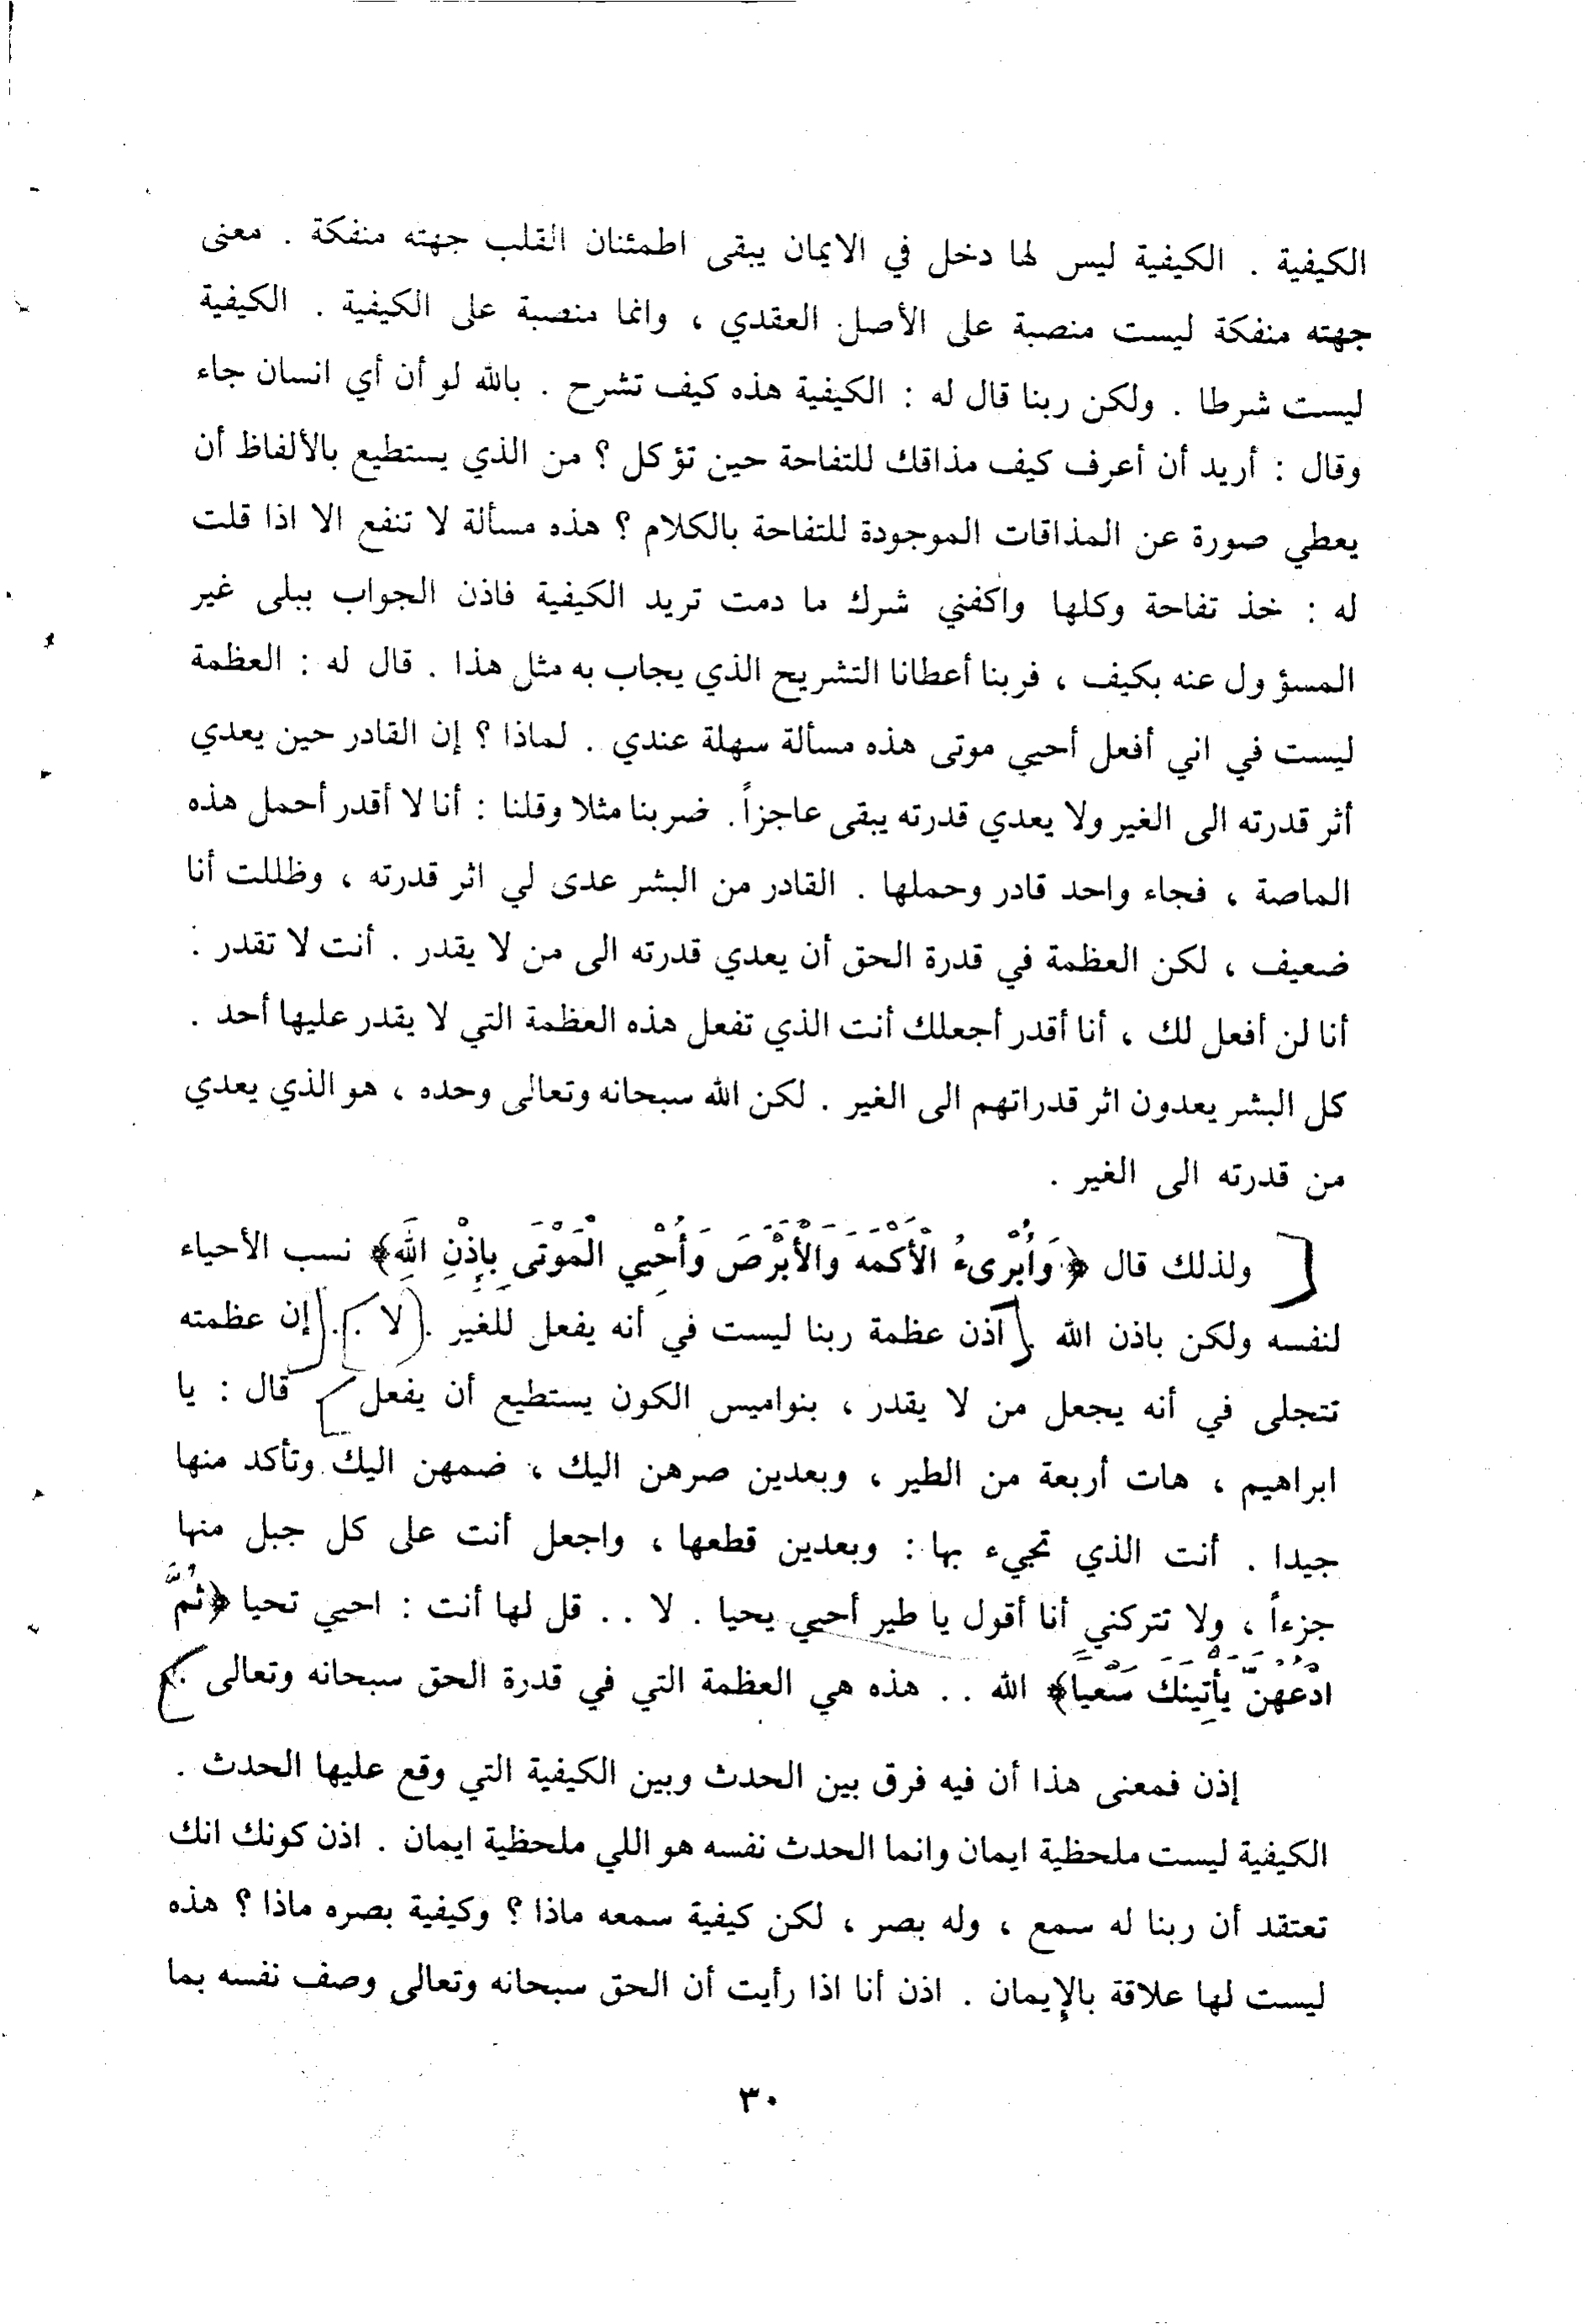 الكيفية . الكيفية ليس لها دخل في الايمان يبقى اطمئنان القلب جهته منفكة . معنى
جهته منفكة ليست منصبة على الأصل العقدي ، وانما منصبة على الكيفية . الكيفية
ليست شرطا . ولكن ربنا قال له : الكيفية هذه كيف تشرح . بالله لو أن أي انسان جاء
وقال : أريد أن أعرف كيف مذاقك للتفاحة حين تؤكل ؟ من الذي يستطيع بالألفاظ أن
يعطي صورة عن المذاقات الموجودة للتفاحة بالكلام ؟ هذه مسألة لا تنفع الا اذا قلت
له : خذ تفاحة وكلها واكفني شرك ما دمت تريد الكيفية فاذن الجواب ببلى غير
المسؤول عنه بكيف ، فربنا أعطانا التشريح الذي يجاب به مثل هذا . قال له : العظمة
ليست في اني أفعل أحيي موتى هذه مسألة سهلة عندي . لماذا ؟ إن القادر حين يعدي
أثر قدرته الى الغير ولا يعدي قدرته يبقى عاجزاً . ضربنا مثلا وقلنا : أنا لا أقدر أحمل هذه
الماصة ، فجاء واحد قادر وحملها . القادر من البشر عدى لي اثر قدرته ، وظللت أنا
ضعيف ، لكن العظمة في قدرة الحق أن يعدي قدرته الى من لا يقدر . أنت لا تقدر :
أنا لن أفعل لك ، أنا أقدر أجعلك أنت الذي تفعل هذه العظمة التي لا يقدر عليها أحد .
كل البشر يعدون اثر قدراتهم الى الغير . لكن الله سبحانه وتعالى وحده ، هو الذي يعدي
من قدرته الى الغير .
ولذلك قال ﴿وَأُبْرِىءُ الْأَكْمَهَ وَالْأَبْرَصَ وَأُحْيِي الْمَوْتَى بِإِذْنِ اللَّهِ﴾ نسب الأحياء
لنفسه ولكن باذن الله . اذن عظمة ربنا ليست في أنه يفعل للغير . لا . . إن عظمته
تتجلى في أنه يجعل من لا يقدر ، بنواميس الكون يستطيع أن يفعل قال : يا
ابراهيم ، هات أربعة من الطير ، وبعدين صرهن اليك ، ضمهن اليك وتأكد منها
جيدا . أنت الذي تجيء بها : وبعدين قطعها ، واجعل أنت على كل جبل منها
جزءاً ، ولا تتركني أنا أقول يا طير أحيي يحيا . لا . . قل لها أنت : احيي تحيا ﴿ثُمَّ
ادْعُهُنَّ يَأْتِينَكَ سَعْياً﴾ الله . . هذه هي العظمة التي في قدرة الحق سبحانه وتعالى .
إذن فمعنى هذا أن فيه فرق بين الحدث وبين الكيفية التي وقع عليها الحدث .
الكيفية ليست ملحظية ايمان وانما الحدث نفسه هو اللي ملحظية ايمان . اذن كونك انك
تعتقد أن ربنا له سمع ، وله بصر ، لكن كيفية سمعه ماذا ؟ وكيفية بصره ماذا ؟ هذه
ليست لها علاقة بالإيمان . اذن أنا اذا رأيت أن الحق سبحانه وتعالى وصف نفسه بما
٣٠